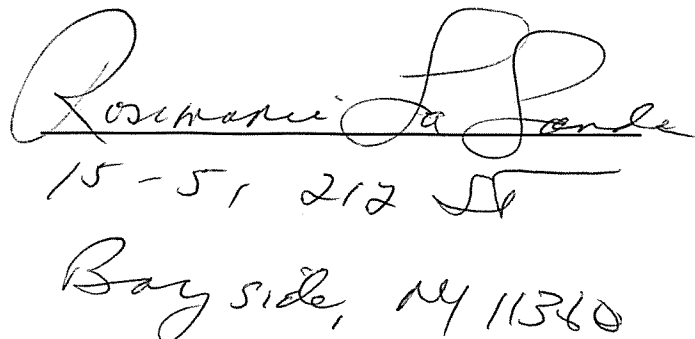 Rosemarie La Londe
15-51 212 St
Bayside, NY 11360